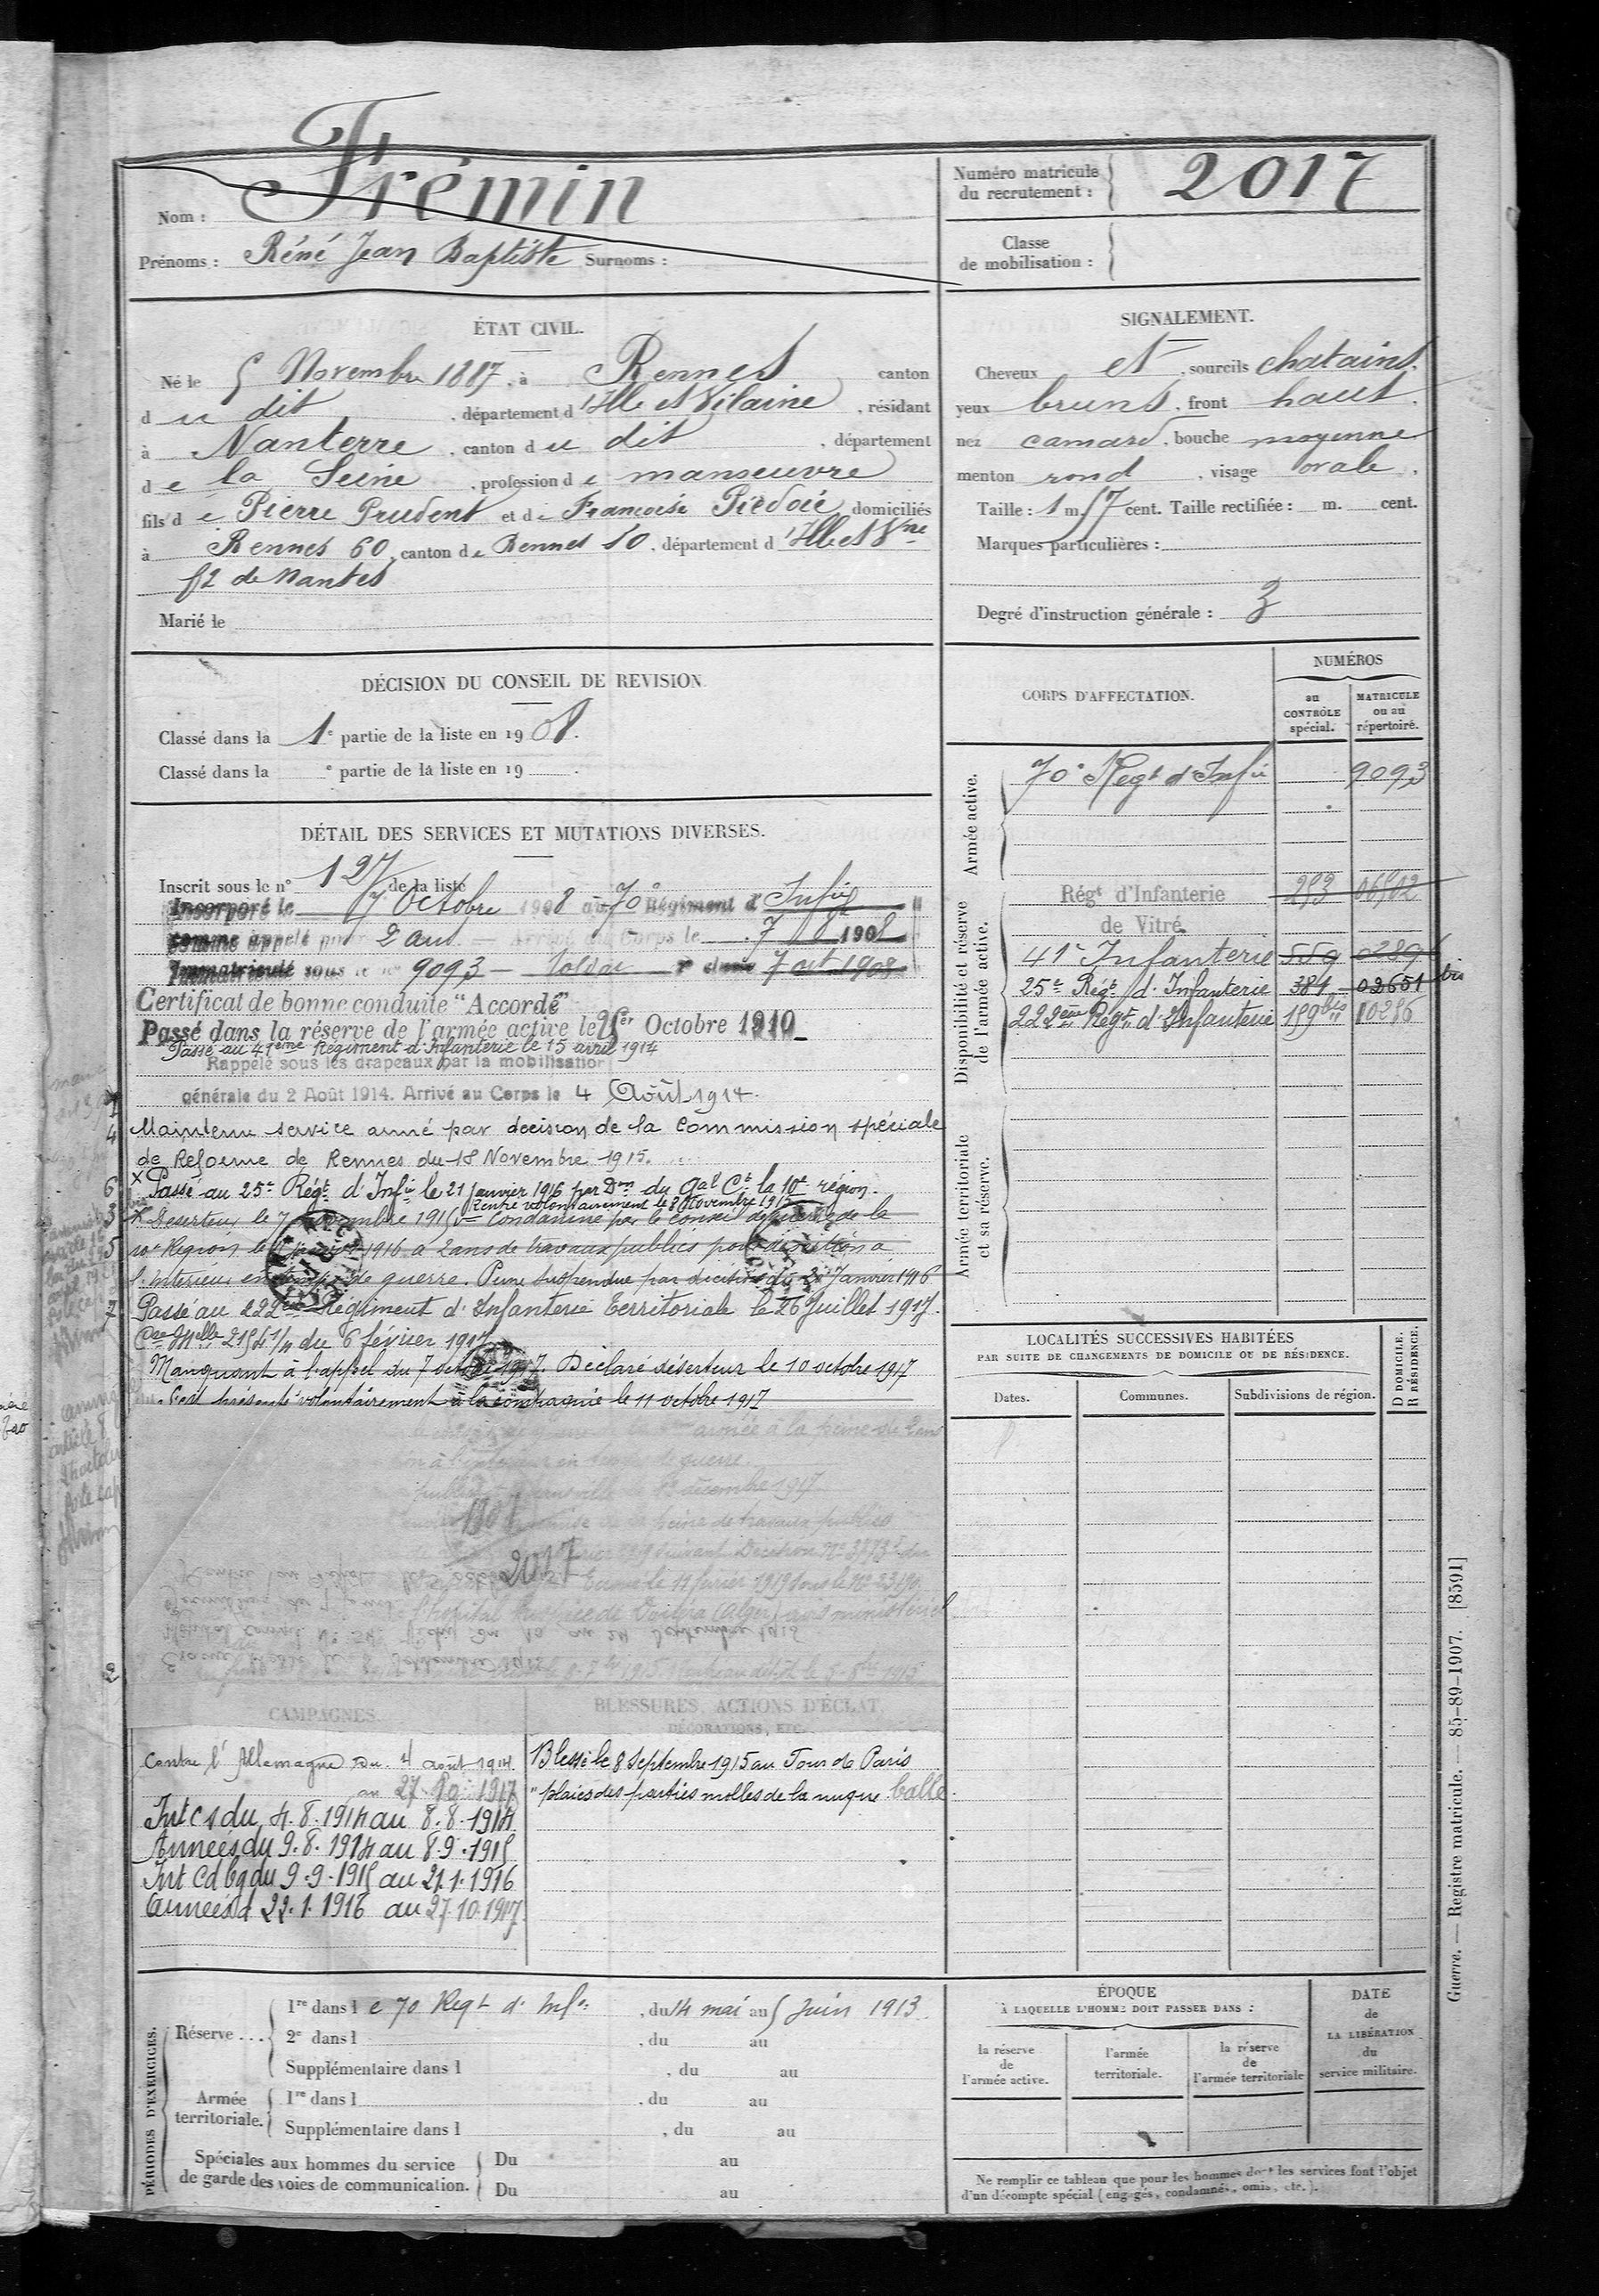 Nom : Frémin
Prénoms : Réné Jean Baptiste Surnoms :
Numéro matricule du recrutement : 2017
Classe de mobilisation :
ÉTAT CIVIL.
Né le 5 Novembre 1887, à Rennes canton
du dit, département d'Ille et Vilaine, résidant
à Nanterre, canton du dit, département
de la Seine, profession de manoeuvre
fils de Pierre Prudent et de Françoise Piedoie domiciliés
à Rennes 60, canton de Rennes SO, département d'Ille et Vne
52 de Nantes
Marié le
SIGNALEMENT.
Cheveux et sourcils chatains,
yeux bruns, front haut,
nez camard, bouche moyenne
menton rond, visage ovale,
Taille : 1 m. 57 cent. Taille rectifiée : m. cent.
Marques particulières :
Degré d'instruction générale : 3
DÉCISION DU CONSEIL DE REVISION
Classé dans la 1e partie de la liste en 1908.
Classé dans la e partie de la liste en 19 .
DÉTAIL DES SERVICES ET MUTATIONS DIVERSES.
Inscrit sous le n° 127 de la liste
Incorporé le 7 Octobre 1908 au 70e Régiment d'Infie
comme appelé pour 2 ans — Arrivé au Corps le 7 1908
Immatriculé sous le n° 9093 — Soldat 2e classe 7 oct 1908
Certificat de bonne conduite "Accordé"
Passé dans la réserve de l'armée active le Octobre 1910
Passé au 41ème Régiment d'Infanterie le 15 avril 1914
Rappelé sous les drapeaux par la mobilisation
générale du 2 Août 1914. Arrivé au Corps le 4 Août 1914.
4 Maintenu service armé par décision de la Commission spéciale
de Réforme de Rennes du 18 Novembre 1915.
6 X Passé au 25e Régt d'Infie le 21 janvier 1916 par Don du Gal Ct la 10e région.
Rentré volontairement le 8 Novembre 1915
3 X Deserteur le 7 novembre 1915 Condamné par le Conseil de guerre de la
5 10e Région le janvier 1916 à 2 ans de travaux publics pour désertion à
l'Intérieur en temps de guerre. Peine suspendue par décision du 20 Janvier 1916
7 Passé au 222ème Régiment d'Infanterie territoriale le 26 Juillet 1917.
Cre Mlle 2154 1/11 du 6 février 1917
Manquant à l'appel du 7 octobre 1917. Déclaré déserteur le 10 octobre 1917
S'est présenté volontairement à la compagnie le 11 octobre 1917
armée à la peine de 2 ans
à l'intérieur en temps de guerre.
décembre 1917
peine de travaux publics
2017
CAMPAGNES.
Contre l'Allemagne du 4 août 1914
au 27.10.1917
Int cs du 4.8.1914 au 8.8.1914
Armées du 9.8.1914 au 8.9.1915
Int cd bg du 9.9.1915 au 21.1.1916
Armées d 22.1.1916 au 27.10.1917
BLESSURES, ACTIONS D'ÉCLAT,
DÉCORATIONS, ETC.
Blessé le 8 Septembre 1915 au Four de Paris
"plaies des parties molles de la nuque. balle
CORPS D'AFFECTATION.
NUMÉROS
au CONTRÔLE spécial.
MATRICULE ou au répertoire.
Armée active.
70e Régt d'Infie 9093
Disponibilité et réserve de l'armée active.
Régt d'Infanterie 293 06502
de Vitré.
41e Infanterie 559
25e Régt d'Infanterie 384 02651 bis
222ème Régt d'Infanterie 159bis 10286
Armée territoriale et sa réserve.
LOCALITÉS SUCCESSIVES HABITÉES
PAR SUITE DE CHANGEMENTS DE DOMICILE OU DE RÉSIDENCE.
Dates. Communes. Subdivisions de région.
D DOMICILE.
R RÉSIDENCE.
PÉRIODES D'EXERCICES.
Réserve ... 1re dans le 70 Régt d'Infie, du 14 mai au 5 Juin 1913.
2e dans l , du au
Supplémentaire dans l , du au
Armée territoriale. 1re dans l , du au
Supplémentaire dans l , du au
Spéciales aux hommes du service de garde des voies de communication. Du au
Du au
ÉPOQUE
À LAQUELLE L'HOMME DOIT PASSER DANS :
la réserve de l'armée active.
l'armée territoriale.
la réserve de l'armée territoriale
DATE de LA LIBÉRATION du service militaire.
Ne remplir ce tableau que pour les hommes dont les services font l'objet
d'un décompte spécial (engagés, condamnés, omis, etc.).
Guerre. — Registre matricule. — 85-89-1907. [8591]